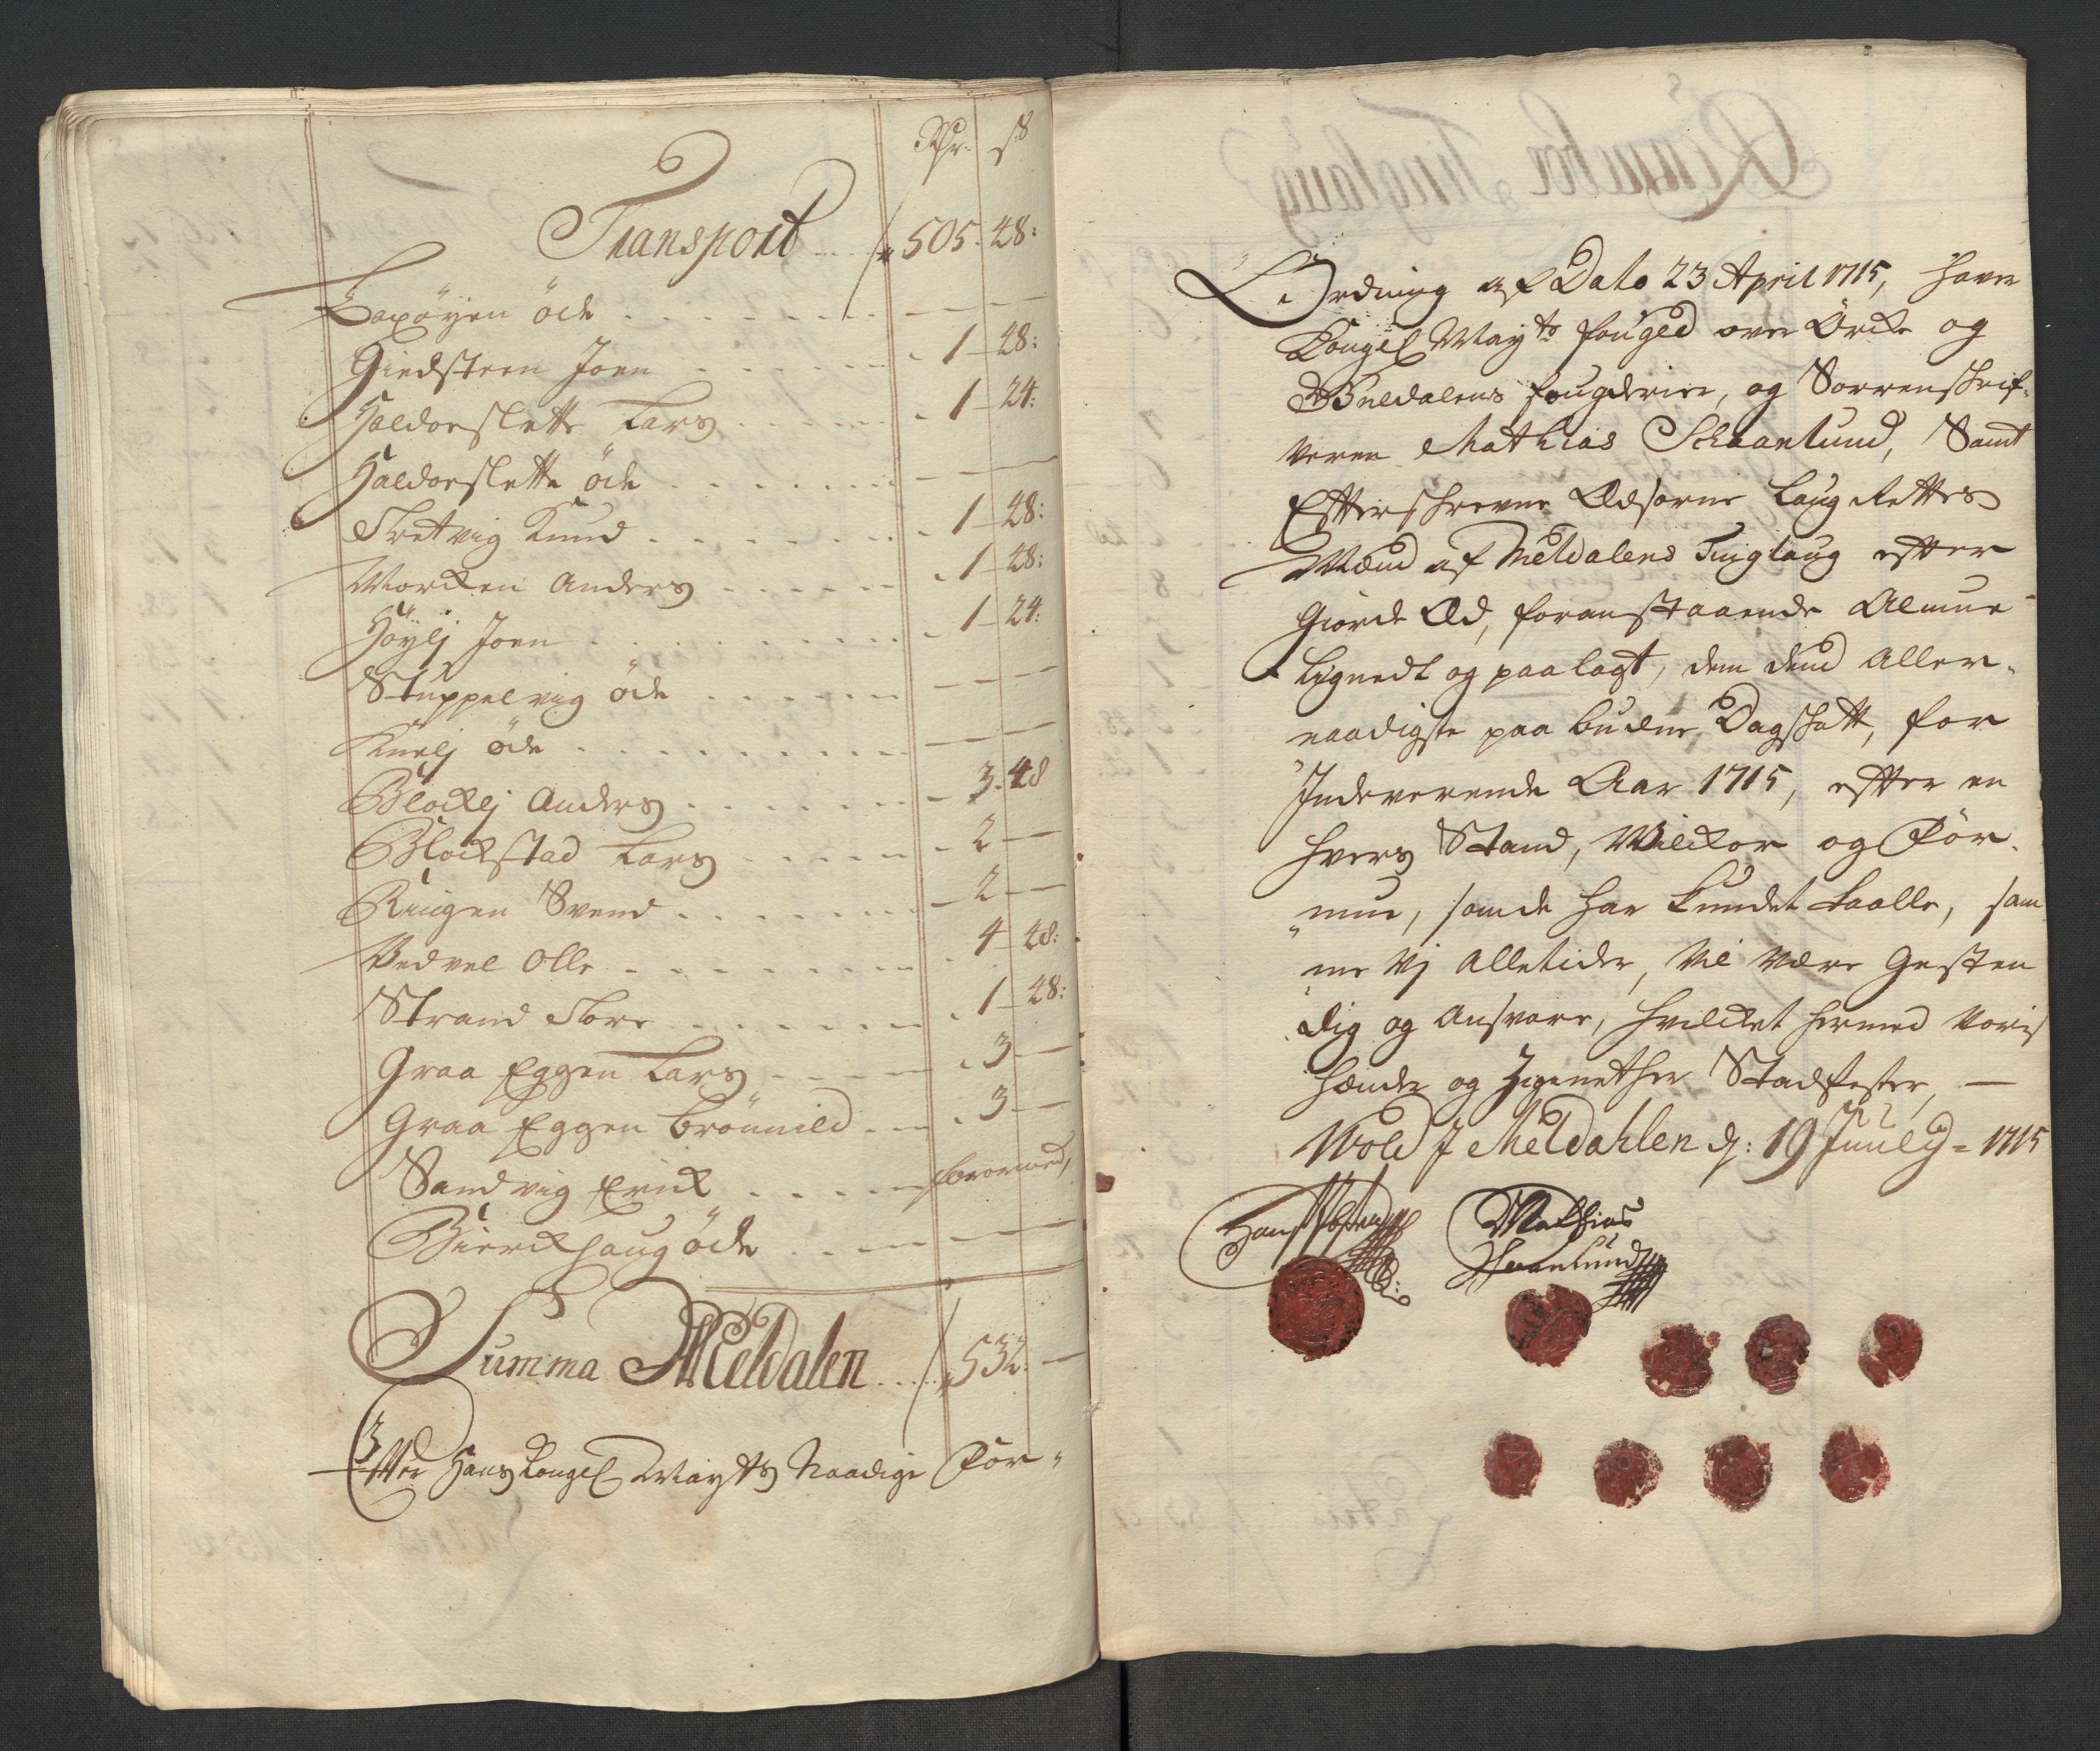 Rdr. s
Transport .... 505. 48:
Laxøyen öde . . . . . . . — —
Giedsteen Joen . . . . . . 1 — 48:
Haldorslette Lars . . . . . 1 — 24:
Haldorslette öde . . . . . . . —
Sletvig Knud . . . . . . . 1 — 28:
Morken Anders . . . . . 1 — 28:
Höylj Joen . . . . . . . . 1 — 24:
Stuppelvig öde . . . . . . — — —
Knelj öde . . . . . . . . — —
Blocklj Anders . . . . . . . 3. 48
Blockstad Lars . . . . . 2 —
Ringen Svend . . . . . . . 2 —
Vedvel Olle . . . . . . . . 4 — 48:
Strand Tore . . . . . . . 1 — 48:
Graa Eggen Lars . . . . . 3 —
Graa Eggen Brönnild . . . 3 —
Sandvig Erick . . . . .
Bierckhaug öde . . . — — —
Summa Meldalen .... 532: —
Efter Hans Kongel Maytts Naadige För-
Ordning af Dato 23 April 1715, haver
Kongel Mayts fouged over Örcke og
Guldalens fougderier, og Sorrenskrif-
veren Mathias Schaanlund, Samt
Efterskrevne Edsorne Laug Rettes
Mænd af Meldalens Tinglaug efter
Giorde Ed, foranstaaende Almue
Lignedt og paalagt, dem dend Aller-
naadigste paa budne Dagskatt, for
Indeverende Aar 1715, efter en
hvers Stand, Vilckor og För-
mue, som de har kundet taalle, som
me Vj alletider, Vil være Gesten
dig og Ansvare, hvilcket hermed Voris
hænder og Zigenether Stadfester, —
Wold J Meldahlen d: 19 Juuly = 1715
Hans
Mathias
Schaanlund